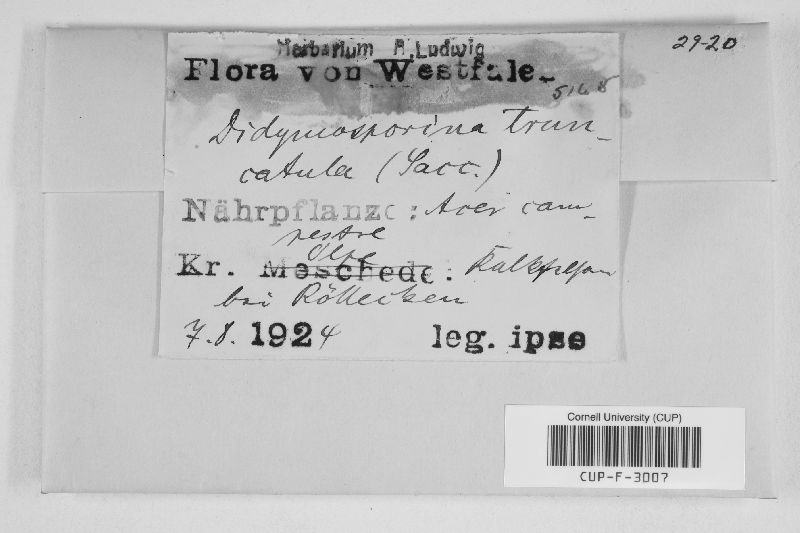 29-20
Herbarium A. Ludwig
Flora von Westfale
5168
Didymosporina trun-
catula (Sacc.)
Nährpflanze: Acer cam-
pestre
Olpe
Kr. Meschede: Kalkfelsen
bei Röllecken
7.8. 1924 leg. ipse
Cornell University (CUP)
CUP-F-3007